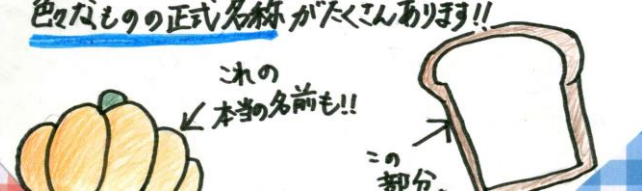 色々なものの正式名称がたくさんあります!!
これの
本当の名前も!!
この
部分。